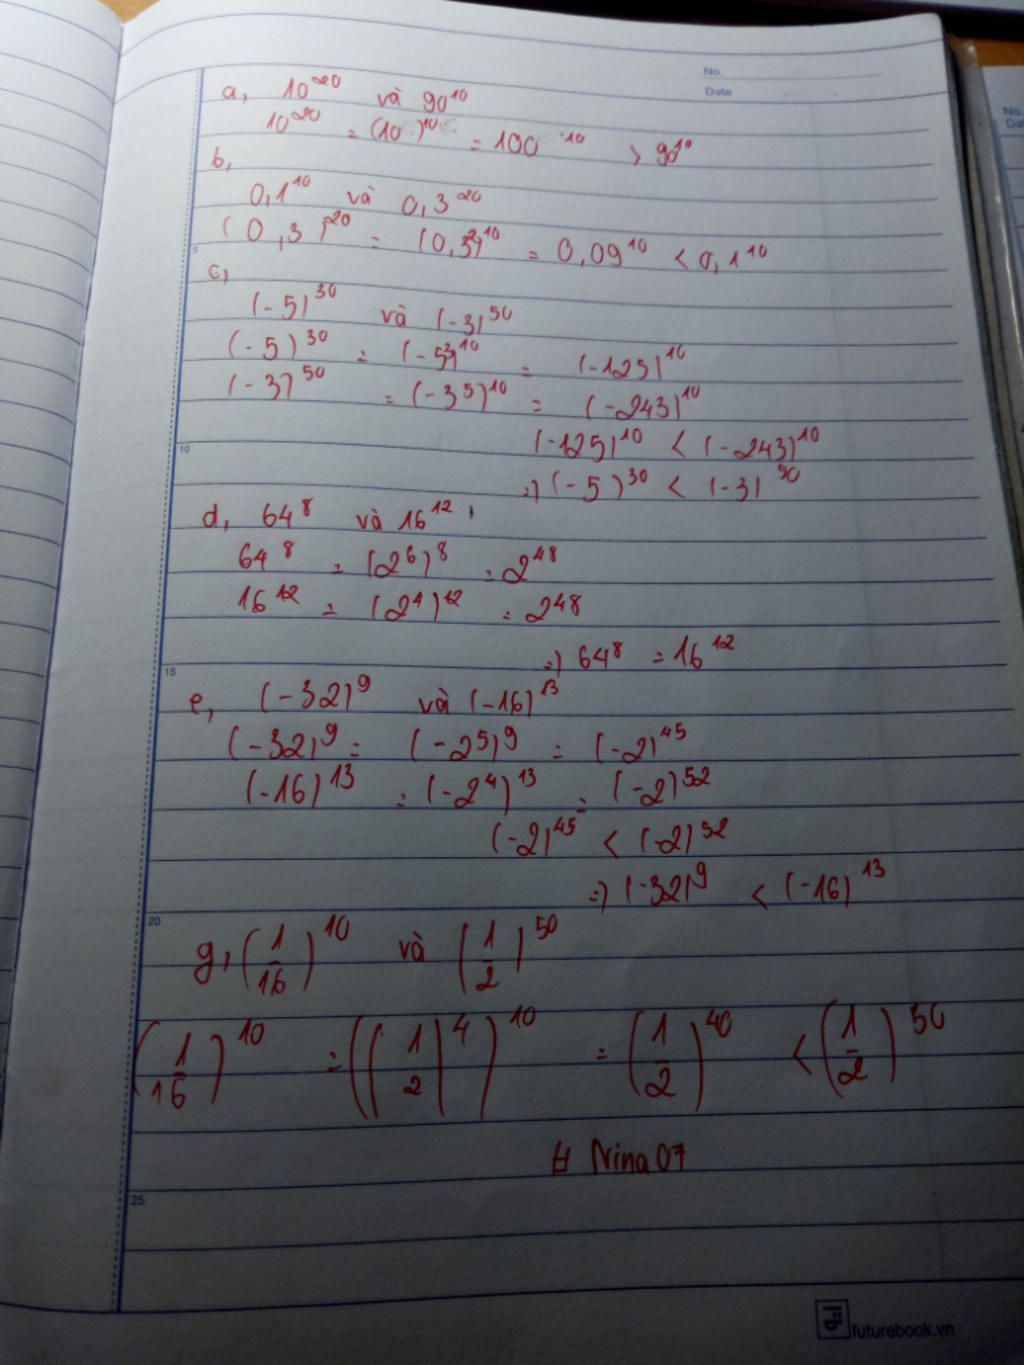 No.
Date
a, 10^20 và 90^10
10^20 = (10 )^10 = 100^10 > 90^10
b,
0,1^10 và 0,3^20
( 0,3 )^20 = (0,3^2)^10 = 0,09^10 < 0,1^10
5
c,
(-5)^30 và (-3)^50
(-5)^30 = (-5^3)^10 = (-125)^10
(-3)^50 = (-3^5)^10 = (-243)^10
10
(-125)^10 < (-243)^10
=) (-5)^30 < (-3)^50
d, 64^8 và 16^12
64^8 = (2^6)^8 = 2^48
16^12 = (2^4)^12 = 2^48
=) 64^8 = 16^12
15
e, (-32)^9 và (-16)^13
(-32)^9 = (-2^5)^9 = (-2)^45
(-16)^13 = (-2^4)^13 = (-2)^52
(-2)^45 < (-2)^52
=) (-32)^9 < (-16)^13
20
g, (1/16)^10 và (1/2)^50
(1/16)^10 = ((1/2)^4)^10 = (1/2)^40 < (1/2)^50
# Nina07
25
futurebook.vn
No.